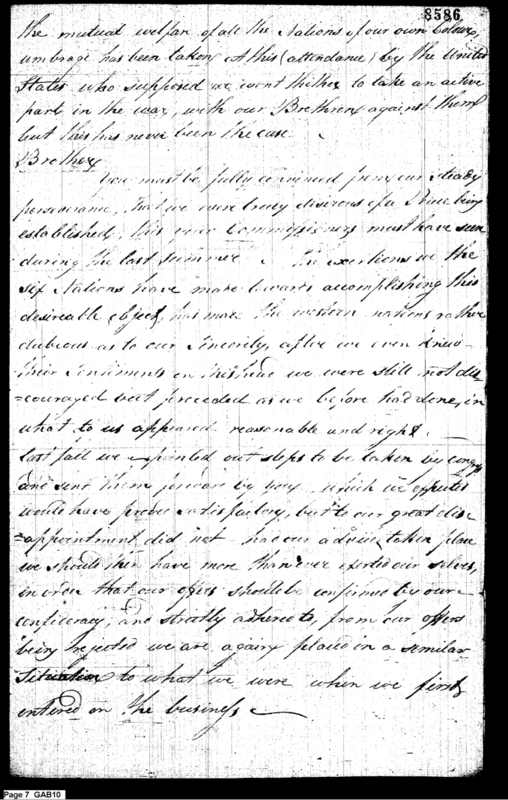 8586
the mutual welfare of all the Nations of our own Colour,
umbrage has been taken at this (attendance) by the United
States who supposed we went thither to take an active
part in the war, with our Brethren against them
but this has never been the case.
Brothers
You must be fully convinced from our steady
perseverance, that we were truly desirous of a Peace being
established, this your Commissioners must have seen
during the last summer. The exertions we the
six Nations have made towards accomplishing this
desireable object, has made the western nations rather
dubious as to our Sincerity, after we even knew
their Sentiments on this head we were still not dis-
=couraged but proceeded as we before had done, in
what to us appeared reasonable and right.
last fall we pointed out steps to be taken by congress
and sent them forward by you which we expected
would have proved satisfactory, but to our great dis-
=appointment did not had our advice taken place
we should then have more than ever exerted our selves,
in order that our offers should be confirmed by our
confederacy, and strictly adhered to, from our offers
being rejected we are again placed in a similar
Situation to what we were when we first
entered on the business
Page 7 GAB10